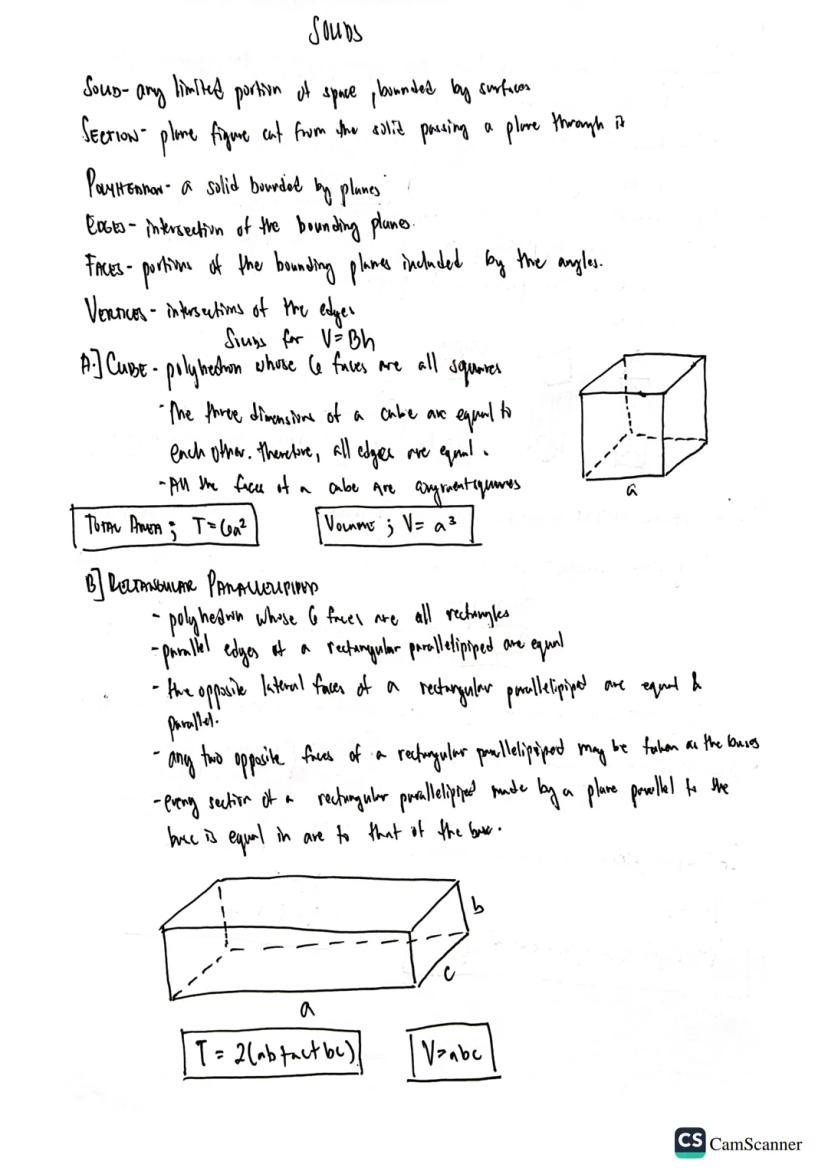 SOLIDS
SOLID- any limited portion of space, bounded by surfaces
SECTION- plane figure cut from the solid passing a plane through it
POLYHEDRON- a solid bounded by planes
EDGES- intersection of the bounding planes.
FACES- portions of the bounding planes included by the angles.
VERTICES- intersections of the edges
Solids for V=Bh
A.] CUBE- polyhedron whose 6 faces are all squares
- The three dimensions of a cube are equal to
each other. therefore, all edges are equal.
- All the faces of a cube are congruent squares
a
TOTAL AREA; T=6a²
VOLUME; V= a³
B] RECTANGULAR PARALLELIPIPED
- polyhedron whose 6 faces are all rectangles
- parallel edges of a rectangular parallelipiped are equal
- the opposite lateral faces of a rectangular parallelipiped are equal &
parallel.
- any two opposite faces of a rectangular parallelipiped may be taken as the bases
- every section of a rectangular parallelipiped made by a plane parallel to the
base is equal in are to that of the base.
b
c
a
T = 2(ab+ac+bc)
V=abc
CS CamScanner